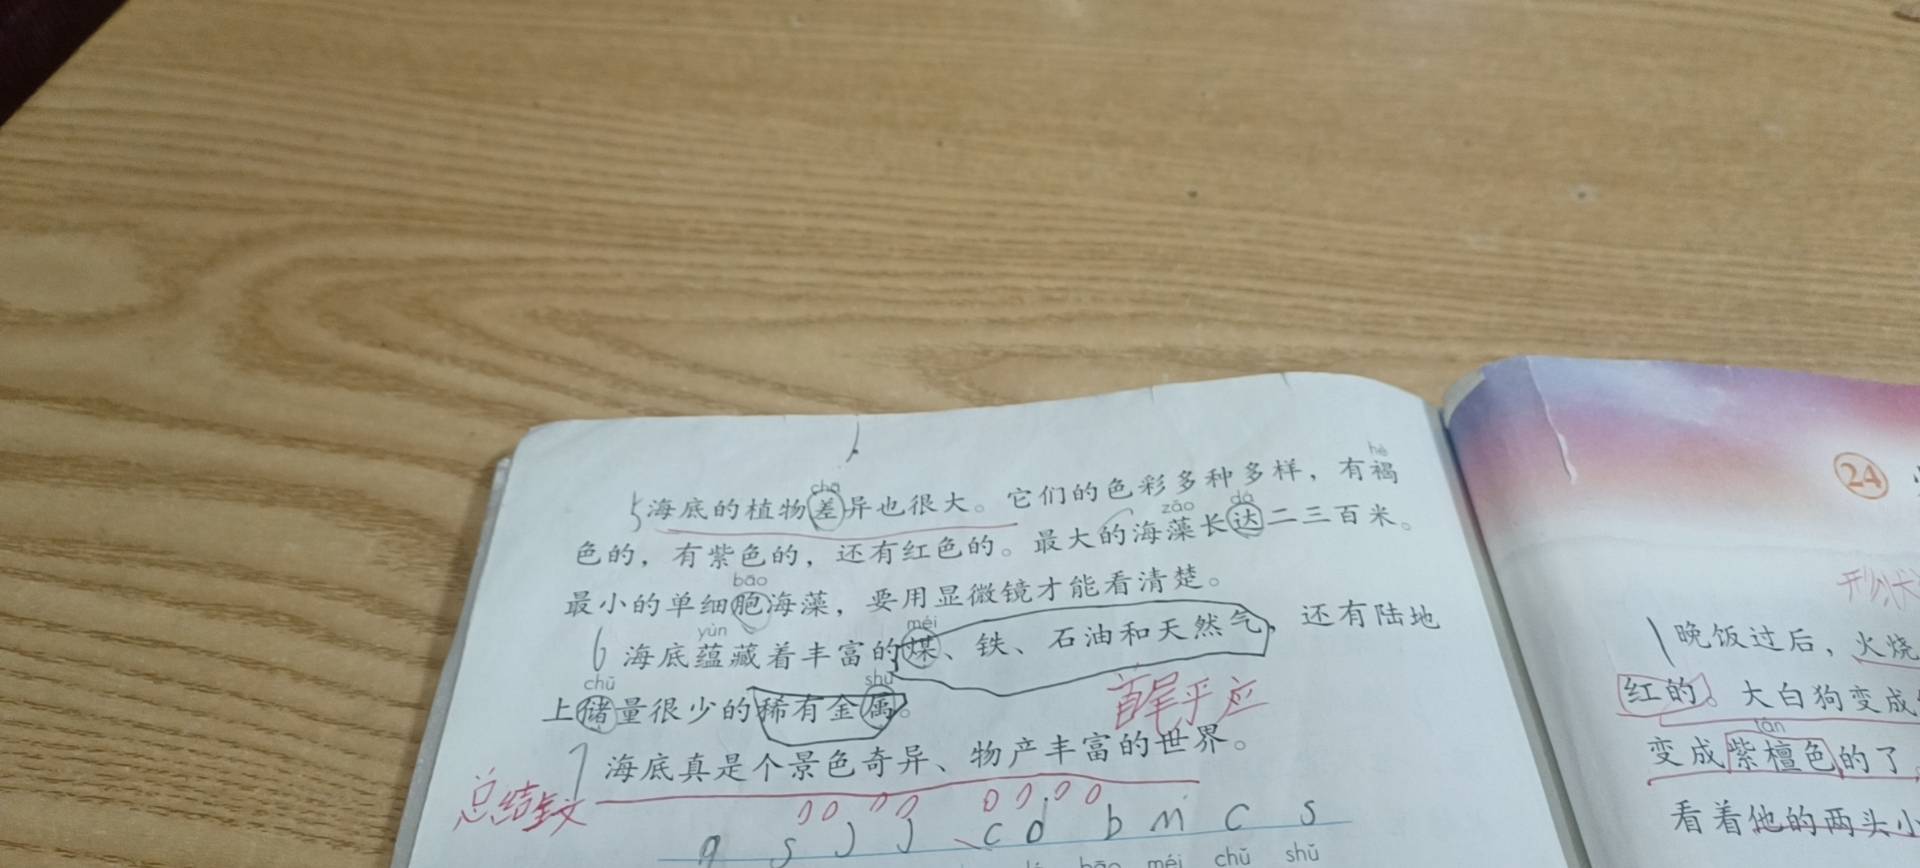 chā
hè
5 海底的植物差异也很大。它们的色彩多种多样，有褐
zǎo
dá
色的，有紫色的，还有红色的。最大的海藻长达二三百米。
bāo
最小的单细胞海藻，要用显微镜才能看清楚。
yùn
méi
6 海底蕴藏着丰富的煤、铁、石油和天然气，还有陆地
chǔ
shǔ
上储量很少的稀有金属。
首尾乎应
7 海底真是个景色奇异、物产丰富的世界。
总结全文
q s J J c d b m c s
bāo méi chǔ shǔ
24
晚饭过后，火烧
红的。大白狗变成
tán
变成紫檀色的了
看着他的两头小